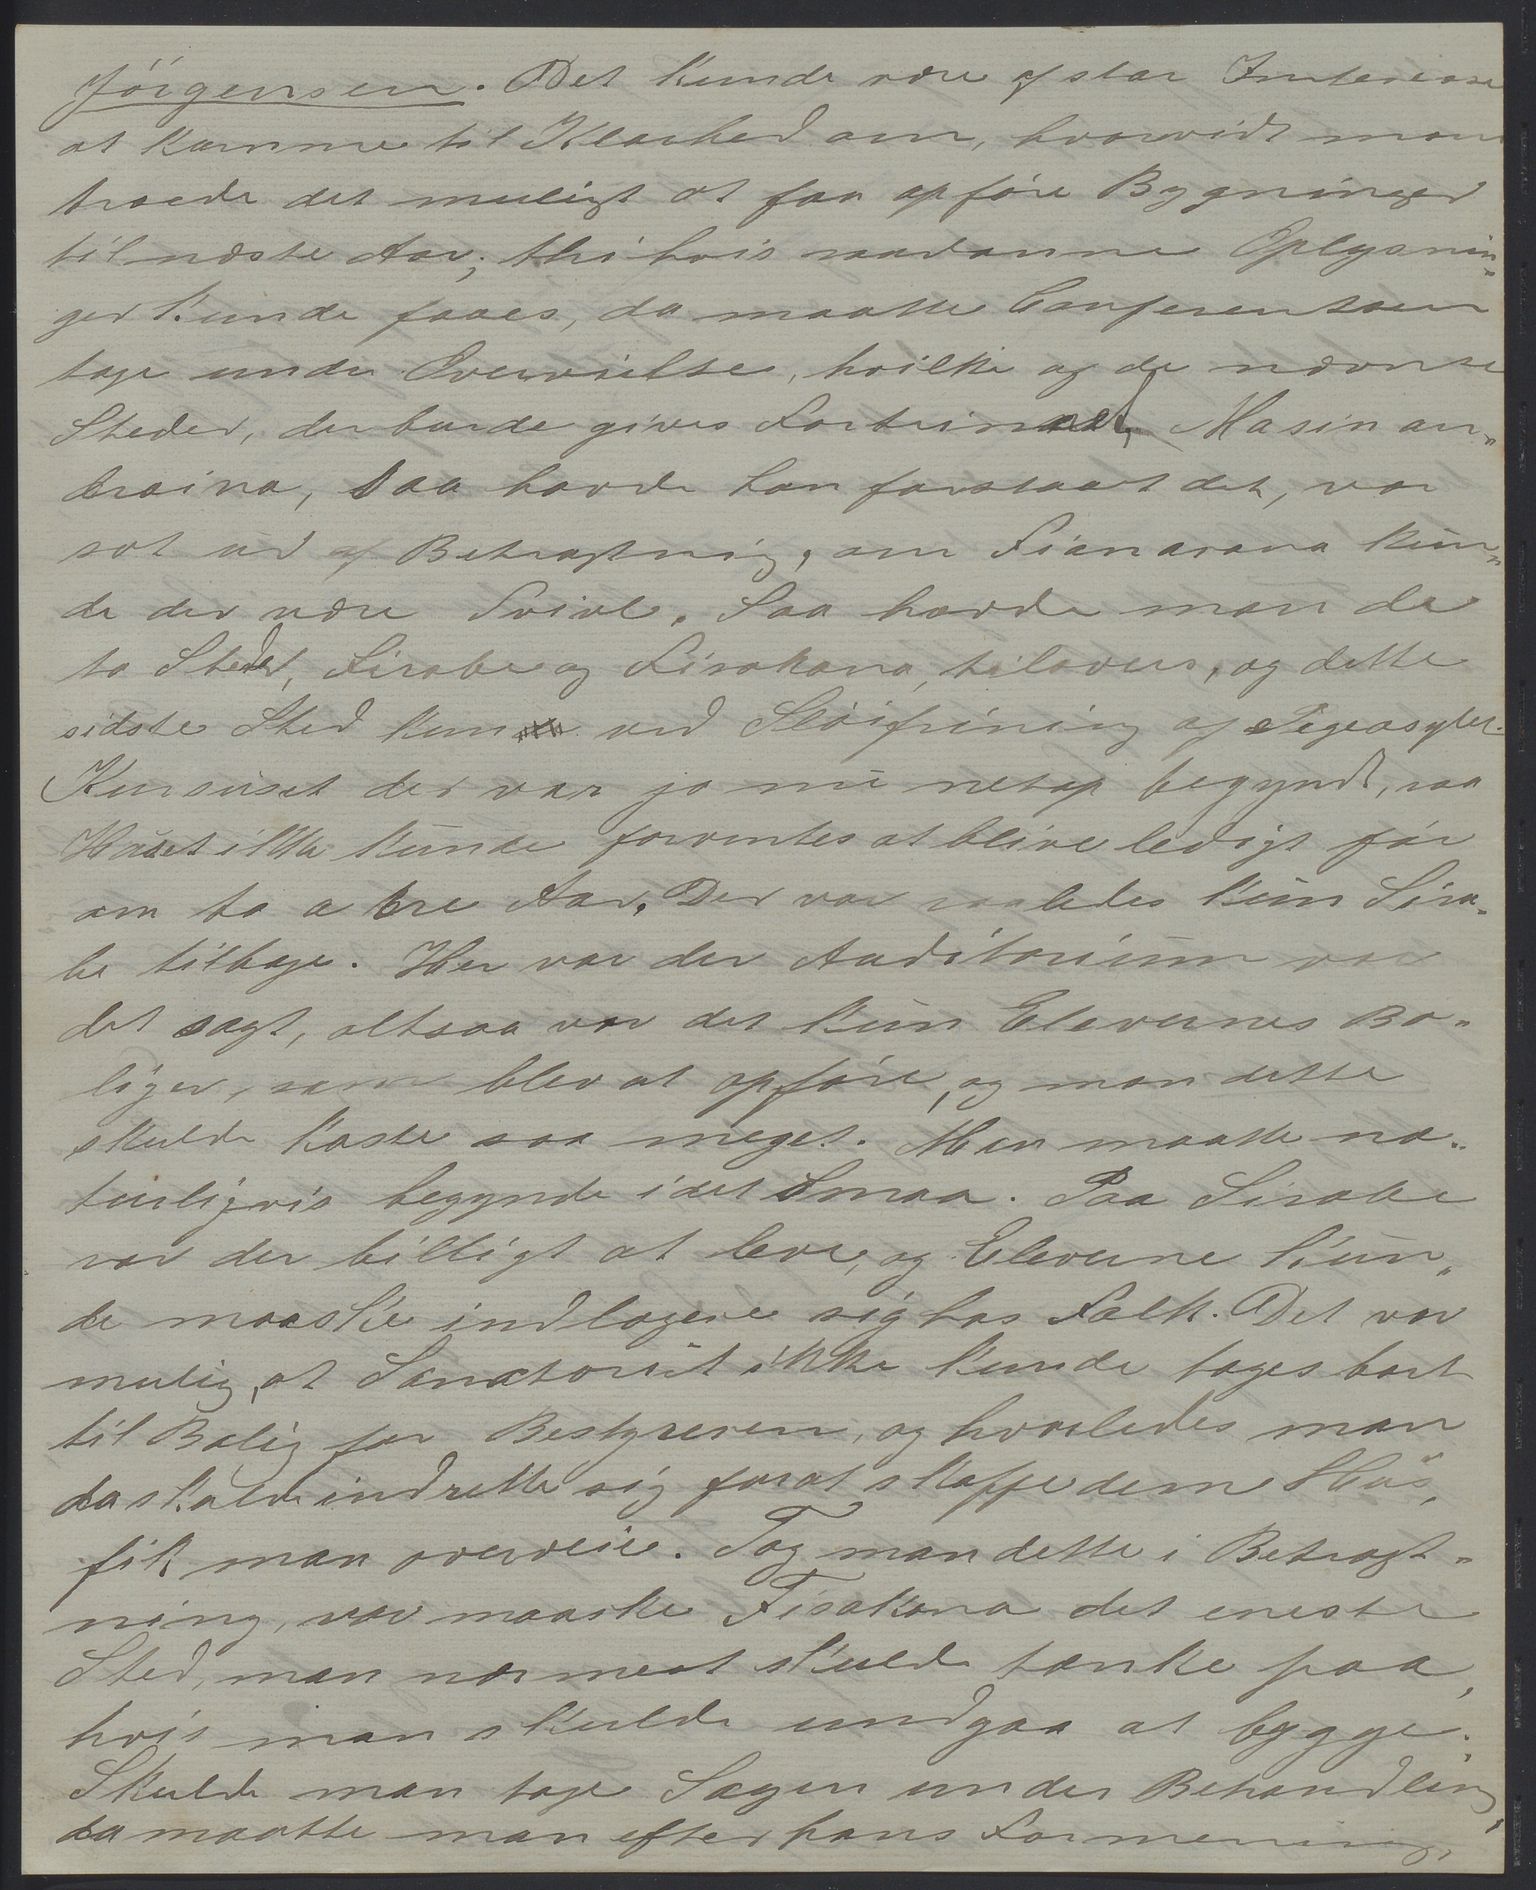 Jörgensen. Det kunde være af stor Interesse
at komme til Klarhed om, hvorvidt man
troede det muligt at faa opføre Bygninger
til næste Aar; thi hvis saadanne Oplysnin-
ger kunde faaes, da maatte Conferentsen
tage under Overveielse, hvilke af de nævnte
Steder, der burde gives Fortrinet. Masinan-
draina, saa havde han forstaaet det, var
sat ud af Betragtning, om Fianarana kun-
de der være Tvivl. Saa havde man de
to Steder, Sirabe og Fisakana, tilovers, og dette
sidste Sted kun ved Sløifning af Pigeasylet.
Kursuset der var jo nu netop begyndt, saa
Huset ikke kunde forventes at blive ledigt før
om to a tre Aar. Der var saaledes kun Sira-
be tilbage. Her var der Auditorium var
det sagt, altsaa var det kun Elevernes Bo-
liger, som blev at opføre, og mon dette
skulde koste saa meget. Man maatte na-
turligvis begynde i det Smaa. Paa Sirabe
var der billigt at leve, og Eleverne kun-
de maaske indlogere sig hos Folk. Det var
mulig, at Sanatoriet ikke kunde tages bort
til Bolig for Bestyreren, og hvorledes man
da skulde indrette sig forat skaffe dem Hus,
fik man overveie. Tog man dette i Betragt-
ning, var maaske Fisakana det eneste
Sted, man nærmest skulde tænke paa,
hvis man skulde undgaa at bygge.
Skulde man tage Sagen under Behandling,
da maatte man efter hans Formening,